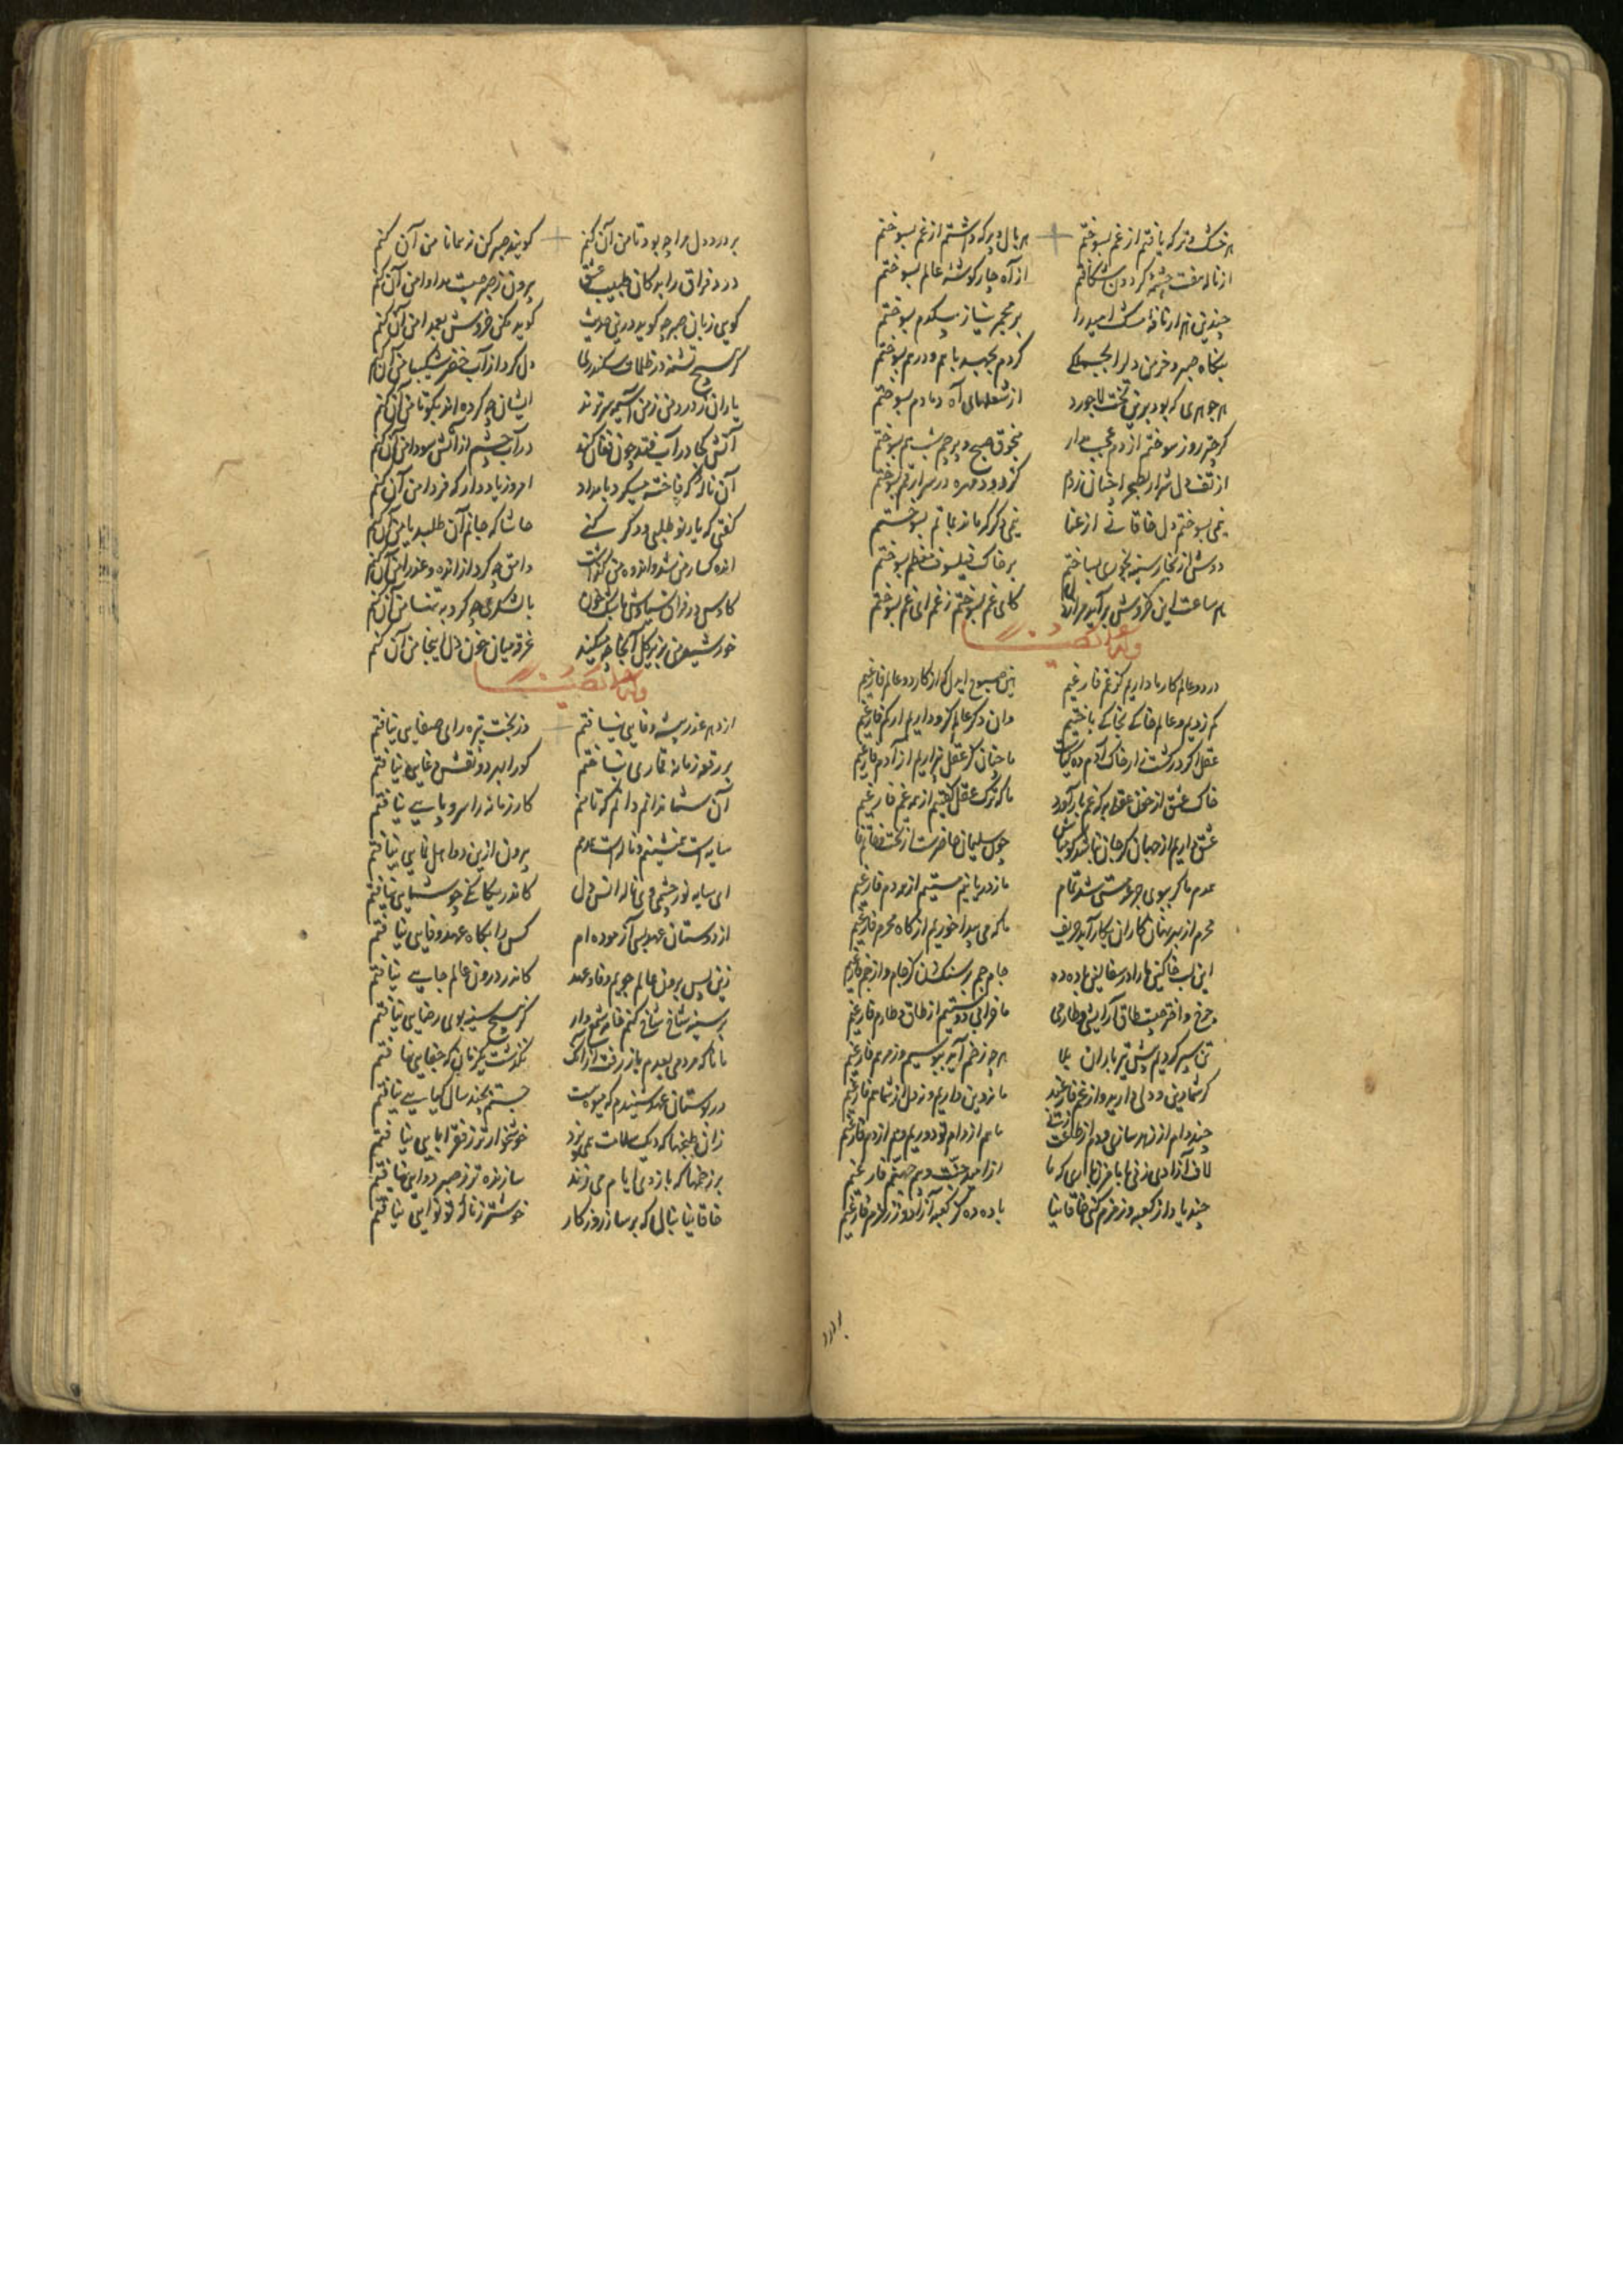 هر خشک و تر که یافتم از غم بسوختم هر بال و پر که داشتم از غم بسوختم
از ناله هفت چشمه گردون شکافتم از آه چار گوشه عالم بسوختم
چندین هزار نافه مشک امید را بر مجمر نیاز بیکدم بسوختم
بنگاه صبر و خرمن دل را بجملکی کردم بجهد با هم و درهم بسوختم
هر جوهری که بود برین تخت لاجورد از شعلهای آه دمادم بسوختم
کر چتر روز سوختم از دم عجب مدار منجوق صبح و پرچم شب هم بسوختم
از تف دل شرار چنان زدم کز دود مهره در سر ارقم بسوختم
نیمی بسوختم دل خاقانی از عنا نیمی دکر که ماند بماتم بسوختم
دوش از بخار سینه بخوری بساختم بر خاک فیلسوف معظم بسوختم
هر ساعت این خروش بر آید مرا ز دل کای غم بسوختم زغم ای غم بسوختم
در دو عالم کار ما داریم کز غم فارغیم الصبوح ای دل که از کار دو عالم فارغیم
کم زدیم و عالم خاکی بخاکی باختیم وان دکر عالم کرو داریم ار کم فارغیم
عقل اگر در کشت زار خاک آدم ده کیاست ما چنان کز عقل بیزاریم از آدم فارغیم
خاک عشق از خون عقلی به که غم بار آورد ما که ترک عقل گفتیم از همه غم فارغیم
عشق داریم از جهان کر جان نباشد کو مباش چون سلیمان حاضرست از تخت و خاتم فارغیم
همدم ما کر ببوی جرعه مستی شد تمام ما ز دریا نیم مستیم از همدم فارغیم
محرم از بهر نهان کاران بکار آید حریف ما که می پیدا خوریم از کاه محرم فارغیم
این لب خاکین ما را در سفالین باده ده جام جم بر سنک زن کز جام و از جم فارغیم
چرخ و اختر چیست طاق آرایشی و طارمی ما خراب دوستیم از طاق و طارم فارغیم
تن سپر کردیم پیش تیر باران بلا هر چه زخم آید ببوسیم و ز مرهم فارغیم
کر شما دین و دلی دارید و از غم فارغید ما نه دین داریم و نه دل از شما هم فارغیم
چند دام از زهد سازی و دم از طاعت زنی ما هم از دام تو دوریم و هم از دم فارغیم
لاف آزادی زنی با ما مزن باری که ما از امید جنت و بیم جهنم فارغیم
چند یاد از کعبه و زمزم کنی خاقانیا باده ده کز کعبه آزاد و ز زمزم فارغیم
بر درد دل مرا چه بود تا من آن کنم کویند صبر کن نه همانا من آن کنم
درد فراق را بدکان طبیب عشق بیرون ز صبر چیست مداوا من آن کنم
کوید مکن خروش بعمدا من آن کنم
دل کرد از آب خضر شکیبا من آن کنم
یاران ز درد من ز من آسیمه سرترند ایشان چه کرده اند بکو تا من آن کنم
آتش کجا در آب فتد چون فغان کند در آب چشم از آتش سودا من آن کنم
آن ناله که فاخته میکرد بامداد امروز یاد دار که فردا من آن کنم
کفتی که یار نو طلبی و دکر کنی حاشا که جانم آن طلبد یا من آن کنم
اندهکسار من شد و انده بمن کذاشت وامق چه کرد از انده عذرا من آن کنم
کاوس در فراق سیاوش باشک خون با لشکری چه کرد به تنها من آن کنم
خورشید من بزیر کل آنجا چه میکند غرقه میان خون دل اینجا من آن کنم
از دهر غدر پیشه وفایی نیافتم وز بخت تیره رای صفایی نیافتم
بر رقعه زمانه قماری نباختم کو را بهر دو نقش دغایی نیافتم
کار زمانه را سر و پایی نیافتم
سایه است همنشینم و ناله است همدمم بیرون ازین دو اهل نمایی نیافتم
ای سایه نور چشمی و ای ناله انس دل کاندر یکانکی چو شمایی نیافتم
از دوستان عهد بسی آزموده ام کس را بکاه عهد وفایی نیافتم
زین پس برون عالم جویم وفا و عهد کاندر درون عالم جایی نیافتم
بر سینه شاخ شاخ کنم جامه شمع وار کز هیچ سینه بوی رضایی نیافتم
تا تا که مردمی بعدم باز رفت از آنک نکذشت یک زمان که جفایی نیافتم
در بوستان عهد شنیدم که میوه است جستم بچند سال کیایی نیافتم
خوشخوارتر ز فقر ابایی نیافتم
بر زخمها که بازوی ایام می زند سازنده تر ز صبر دوایی نیافتم
خاقانیا بنال که بر ساز روزکار خوشتر ز ناله تو نوایی نیافتم
بر درد